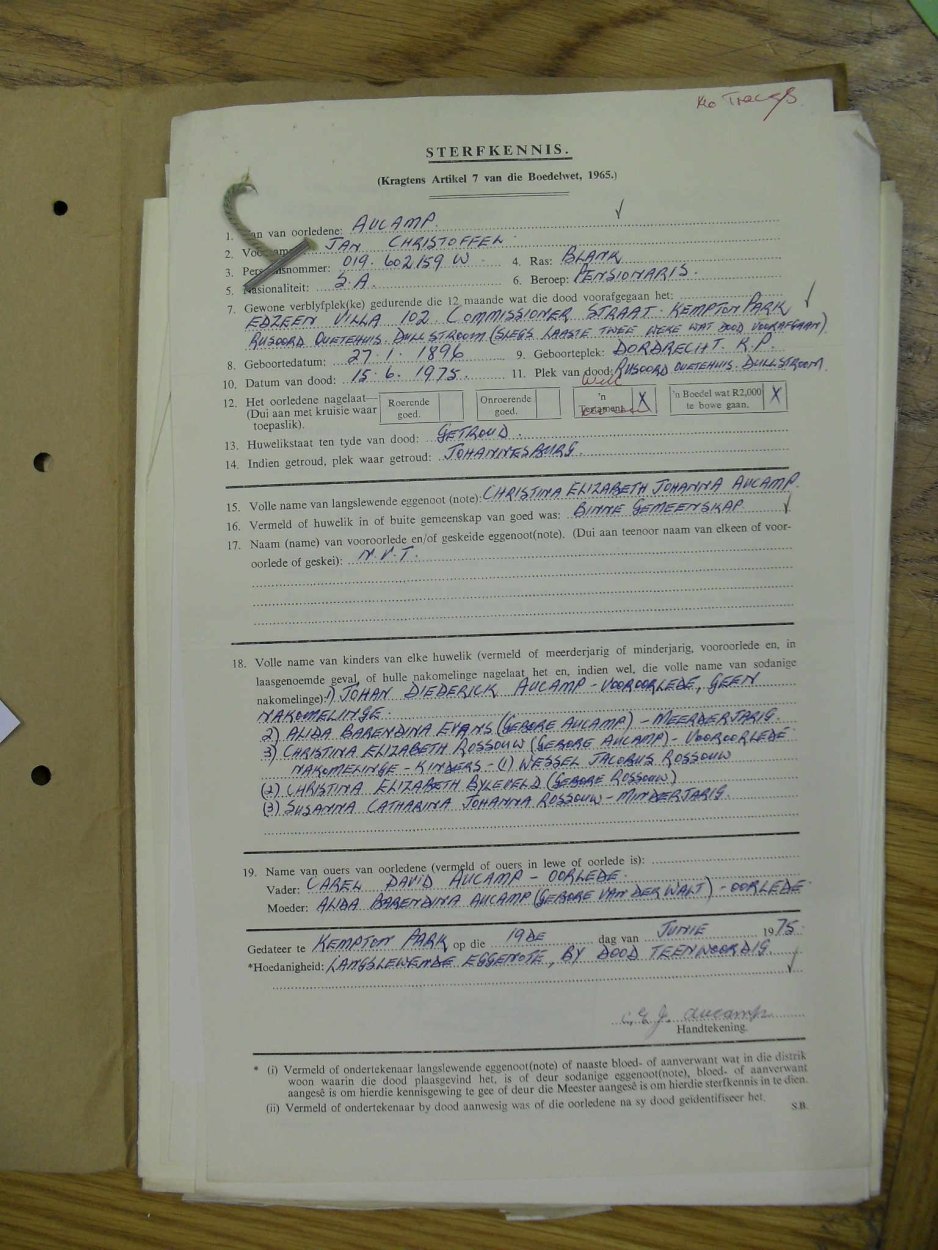 No Traces
STERFKENNIS.
(Kragtens Artikel 7 van die Boedelwet, 1965.)
1. van van oorledene: AUCAMP.
2. JAN CHRISTOFFEL
3. 019. 602159 W. 4. Ras: BLANK
5. Nasionaliteit: S.A. 6. Beroep: PENSIONARIS.
7. Gewone verblyfplek(ke) gedurende die 12 maande wat die dood voorafgegaan het:
EDZEEN VILLA 102 COMMISSIONER STRAAT. KEMPTON PARK
RUSOORD OUETEHUIS. DULLSTROOM (SLEGS LAASTE TWEE WEKE WAT DOOD VOORAFGAAN)
8. Geboortedatum: 27.1.1896 9. Geboorteplek: DORDRECHT. K.P.
10. Datum van dood: 15.6.1975. 11. Plek van dood: RUSOORD OUETEHUIS. DULLSTROOM.
Will
12. Het oorledene nagelaat— Roerende Onroerende 'n X 'n Boedel wat R2,000 X
(Dui aan met kruisie waar goed. goed. Testament te bowe gaan.
toepaslik).
13. Huwelikstaat ten tyde van dood: GETROUD.
14. Indien getroud, plek waar getroud: JOHANNESBURG.
15. Volle name van langslewende eggenoot (note): CHRISTINA ELIZABETH JOHANNA AUCAMP.
16. Vermeld of huwelik in of buite gemeenskap van goed was: BINNE GEMEENSKAP.
17. Naam (name) van vooroorlede en/of geskeide eggenoot(note). (Dui aan teenoor naam van elkeen of voor-
oorlede of geskei): N.V.T.
18. Volle name van kinders van elke huwelik (vermeld of meerderjarig of minderjarig, vooroorlede en, in
laasgenoemde geval, of hulle nakomelinge nagelaat het en, indien wel, die volle name van sodanige
nakomelinge): 1) JOHAN DIEDERICK AUCAMP - VOOROORLEDE, GEEN
NAKOMELINGE.
2) ALIDA BARENDINA EVANS (GEBORE AUCAMP) - MEERDERJARIG.
3) CHRISTINA ELIZABETH ROSSOUW (GEBORE AUCAMP) - VOOROORLEDE
NAKOMELINGE - KINDERS - (1) WESSEL JACOBUS ROSSOUW
(2) CHRISTINA ELIZABETH BYLEVELD (GEBORE ROSSOUW)
(3) SUSANNA CATHARINA JOHANNA ROSSOUW - MINDERJARIG.
19. Name van ouers van oorledene (vermeld of ouers in lewe of oorlede is):
Vader: CAREL DAVID AUCAMP - OORLEDE.
Moeder: ALIDA BARENDINA AUCAMP (GEBORE VAN DER WALT) - OORLEDE
Gedateer te KEMPTON PARK op die 19DE dag van JUNIE 1975.
*Hoedanigheid: LANGSLEWENDE EGGENOTE, BY DOOD TEENWOORDIG.
C.E.J. Aucamp
Handtekening.
* (i) Vermeld of ondertekenaar langslewende eggenoot(note) of naaste bloed- of aanverwant wat in die distrik
woon waarin die dood plaasgevind het, is of deur sodanige eggenoot(note), bloed- of aanverwant
aangesê is om hierdie kennisgewing te gee of deur die Meester aangesê is om hierdie sterfkennis in te dien.
(ii) Vermeld of ondertekenaar by dood aanwesig was of die oorledene na sy dood geïdentifiseer het.
S.B.